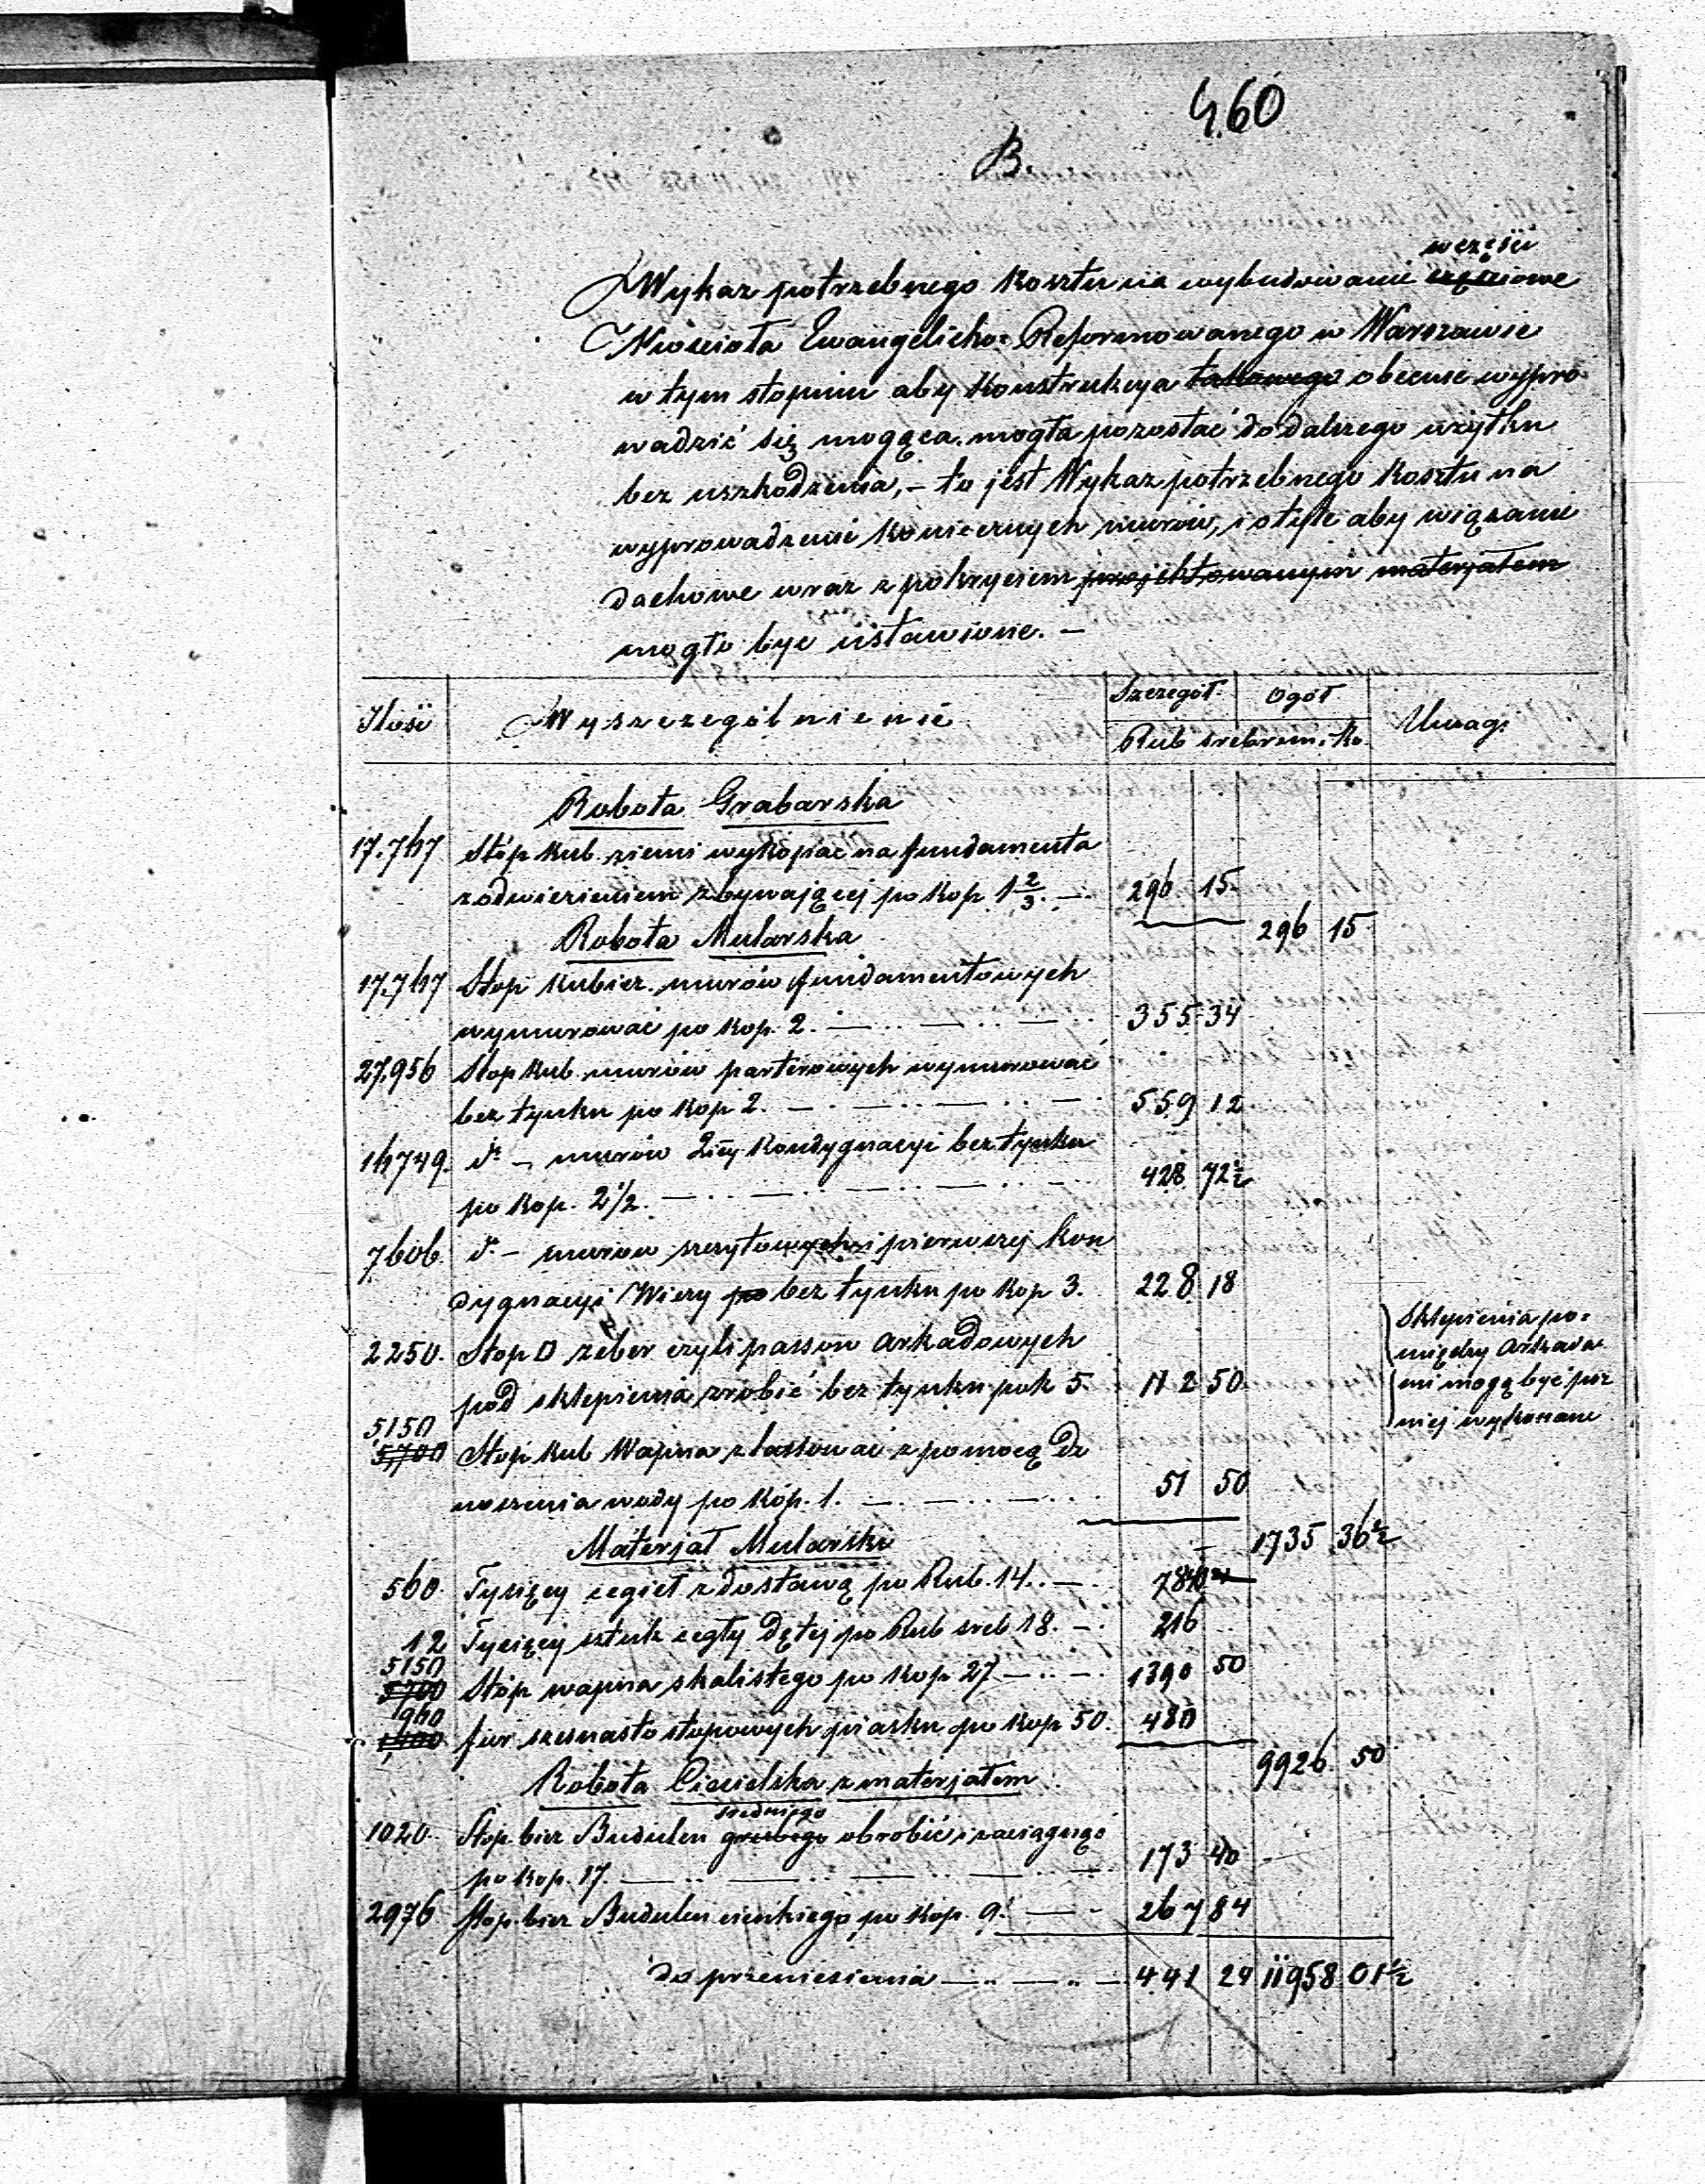 460
B.
w części
Wykaz potrzebnego Kosztu na wybudowanie częściowe
Kościoła Ewangelicko=Reformowanego w Warszawie
w tym stopniu aby Konstrukcya takowego obecnie wypro
wadzić się mogąca. mogła pozostać do dalszego użytku
bez uszkodzenia, – to jest Wykaz potrzebnego Kosztu na
wyprowadzenie Koniecznych murów, i o tyle aby wiązanie
dachowe wraz z pokryciem projektowanym materjałem
mogło być ustawione. –
Ilość Wyszczególnienie Szczegół. Ogół Uwagi
Rub srebrem. Ko.
Robota Grabarska
17.767 Stóp kub. ziemi wykopać na fundamenta
z odwiezieniem zbywającej po kop 1 2/3. 296 15
Robota Mularska 296 15
17,767 Stóp Kubicz. murów fundamentowych
wymurować po kop. 2. 355 34
27,956 Stop Kub. murów parterowych wymurować
bez tynku po kop 2. 559 12
749. do – murów 2iej Kondygnacyi bez tynku
po kop. 2 1/2. 428 72 1/2
7606 do – murów szczytowych i pierwszej Kon
dygnacyi Wieży po bez tynku po kop 3. 228 18
2250. Stop □ żeber czyli passów arkadowych
pod sklepienia zrobić bez tynku po k 5. 112 50
Sklepienia po=
między Arkada
mi mogą być póź
niej wykonane
5150
5,700 Stop kub Wapna zlassować z pomocą do
noszenia wody po kóp. 1. 51 50
Materjał Mularski 1735 36 1/2
560 Tysięcy cegieł z dostawą po Rub. 14. 7840
12 Tysięcy sztuk cegły dętej po Rub sreb 18. 216
5150
5700 Stóp wapna skalistego po kop 27 1390 50
960
fur szesnasto stopowych piasku po kop 50. 480
Robota Ciesielska z materjałem 9926 50
średniego
1020 Stop bież Budulcu grubego obrobić i zaciągnąć
po kop. 17. 173 40
2976 Stop. bież Budulcu cienkiego po kop. 9. 267 84
do przeniesienia 441 24 11958 01 1/2